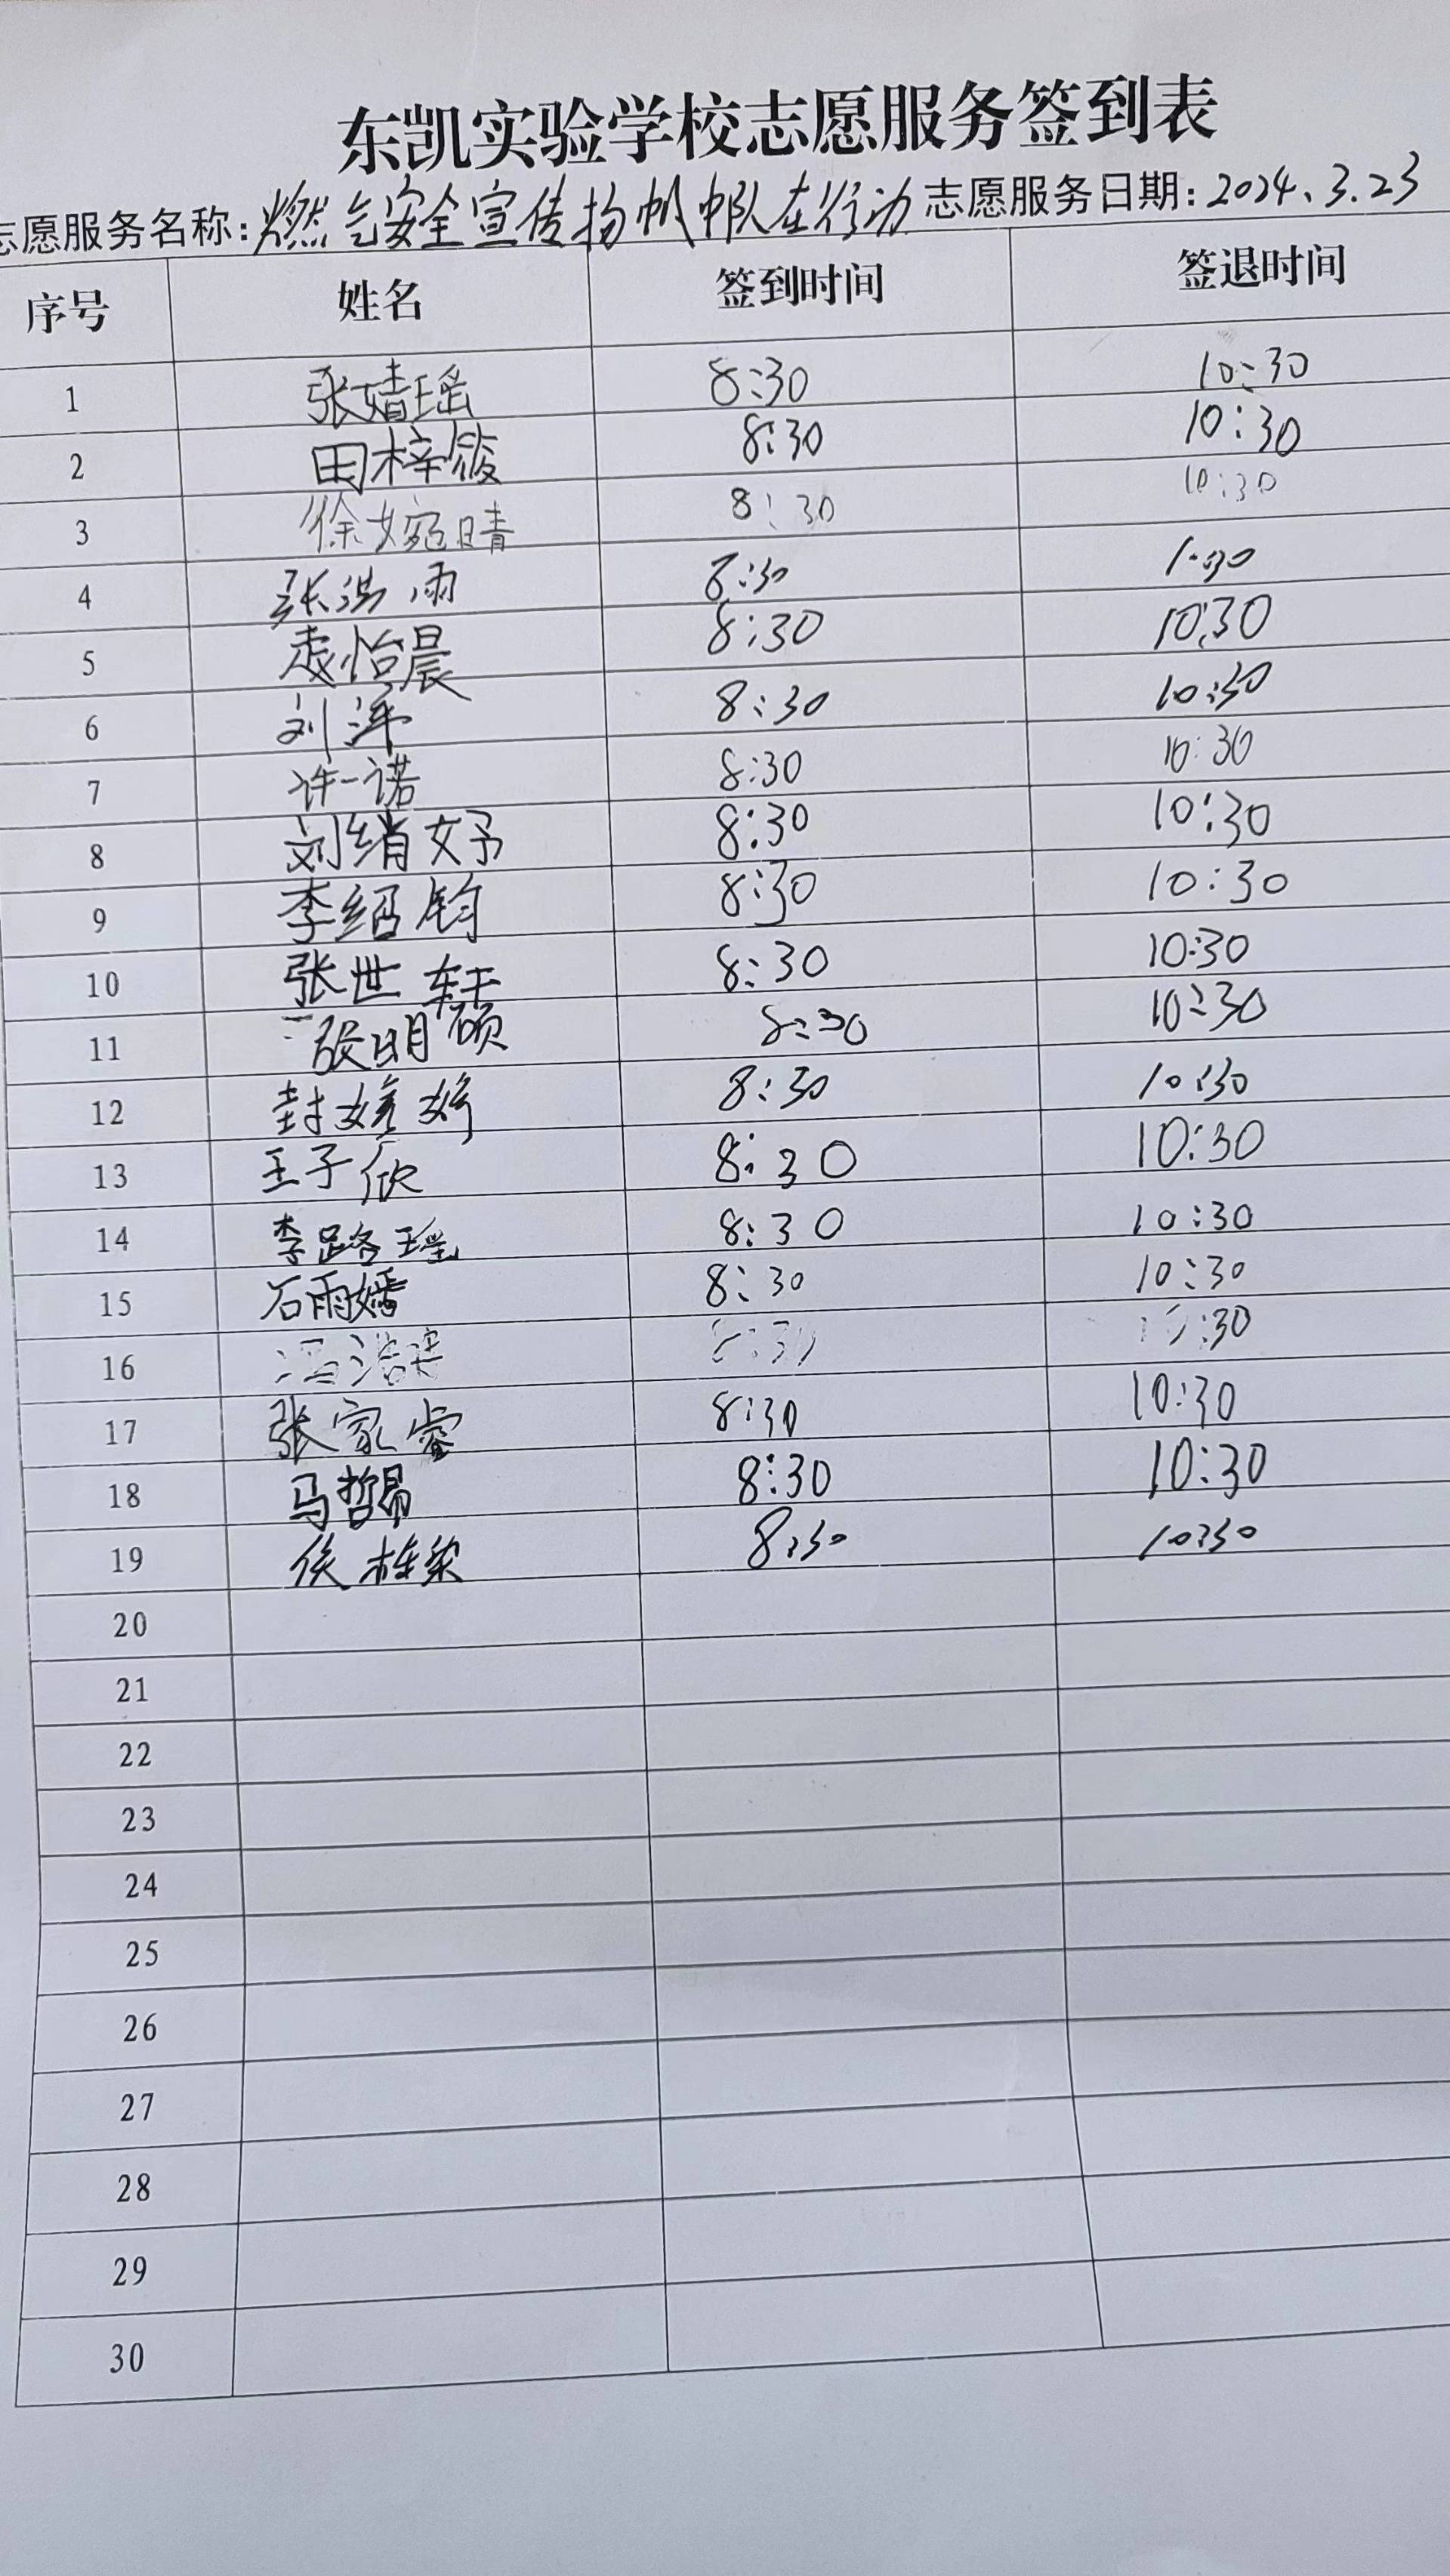 东凯实验学校志愿服务签到表
志愿服务名称:燃气安全宣传扬帆中队在行动 志愿服务日期:2024.3.23
序号 姓名 签到时间 签退时间
1 张婧瑶 8:30 10:30
2 田梓筱 8:30 10:30
3 徐婉晴 8:30 10:30
4 张鸿雨 8:30
5 怡晨 8:30 10:30
6 刘萍 8:30 10:30
7 许一诺 8:30 10:30
8 刘绡妤 8:30 10:30
9 李绍钧 8:30 10:30
10 张世轩 8:30 10:30
11 张明硕 8:30 10:30
12 封婷 8:30 10:30
13 王子欣 8:30 10:30
14 李路瑶 8:30 10:30
15 石雨嫣 8:30 10:30
16 冯浩 8:30 10:30
17 张家睿 8:30 10:30
18 马哲昂 8:30 10:30
19 侯栋梁 8:30 10:30
20
21
22
23
24
25
26
27
28
29
30